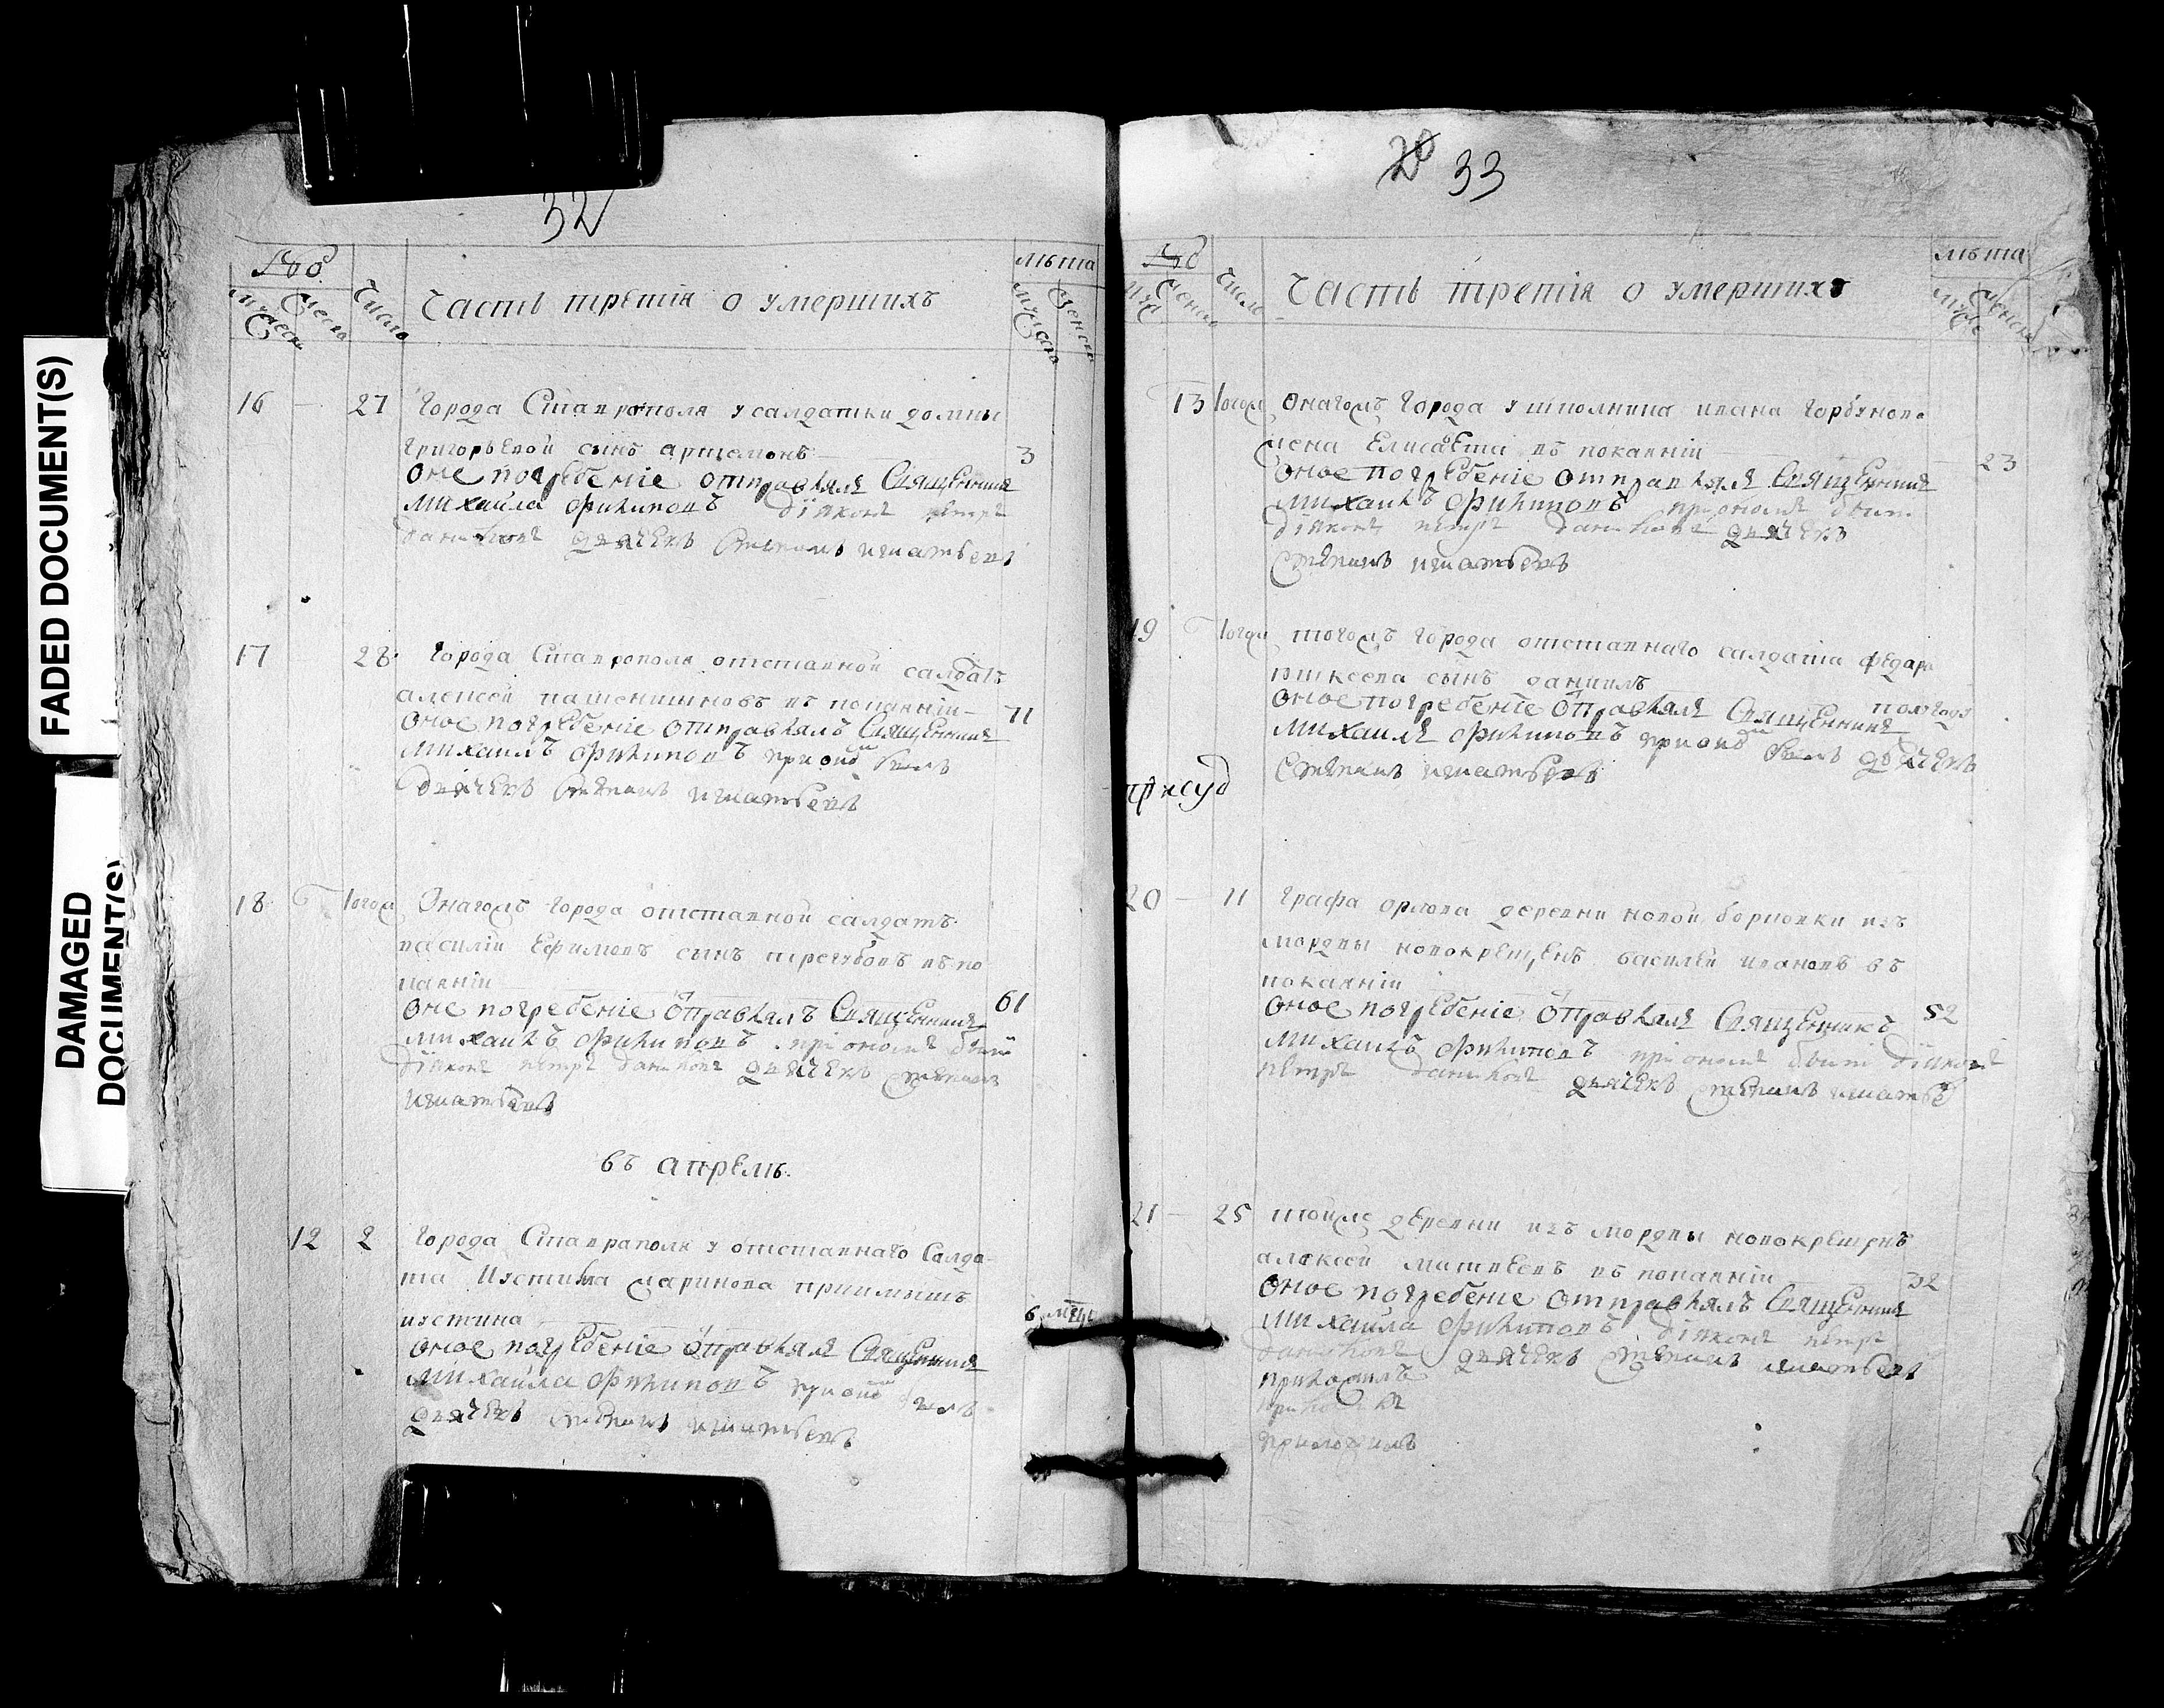 FADED DOCUMENT(S)
DAMAGED
DOCUMENT(S)
32
Число
Часть третія о умершихъ
лѣта
16 27 Города Ставрополя у салдатки домны
григорьевой сынъ артамонъ 3
оне погребеніе отправлялъ Священникъ
михайла филиповъ діяконъ петръ
даниловъ дьячекъ степанъ игнатьевъ
17 28 Города Ставрополя отставной салдатъ
алексей пашенишновъ въ покаяніи 71
оное погребеніе отправлялъ Священникъ
михаилъ филиповъ при
дьячекъ степанъ игнатьевъ
18 Онагожъ города отставной салдатъ
василіи Ефимовъ сынъ въ по
каяніи 61
оне погребеніе отправлялъ Священникъ
михаилъ филиповъ при ономъ были
діяконъ петръ даниловъ дьячекъ степанъ
игнатьевъ
въ апрелѣ
12 2 Города Ставраполя у отставнаго Салда
та Иустина маринова приимышъ
иустина 6 мцы
оное погребеніе отправлялъ Священникъ
михайла филиповъ при
дьячекъ степанъ игнатьевъ
20 33
Число
Часть третія о умершихъ
лѣта
13 Онагожъ Города у ивана горбунова
жена Елисавета въ покаяніи 23
оное погребеніе отправлялъ Священникъ
михаилъ филиповъ при ономъ были
діяконъ петръ даниловъ дьячекъ
степанъ игнатьевъ
19 тогожъ города отставнаго салдата федора
сынъ даниилъ полгода
оное погребеніе отправлялъ Священникъ
михаилъ филиповъ при дьячекъ
степанъ игнатьевъ
20 11 Графа орлова деревни новой борковки изъ
мордвы новокрещенъ василей ивановъ въ
покаяніи 52
оное погребеніе отправлялъ Священникъ
михаилъ филиповъ при ономъ были діяконъ
петръ даниловъ дьячекъ степанъ игнатье
21 25 тойже деревни изъ мордвы новокрещенъ
алексей матвеевъ въ покаяніи 32
оное погребеніе отправлялъ Священникъ
михайла филиповъ діяконъ петръ
даниловъ дьячекъ степанъ игнатьевъ
приложилъ